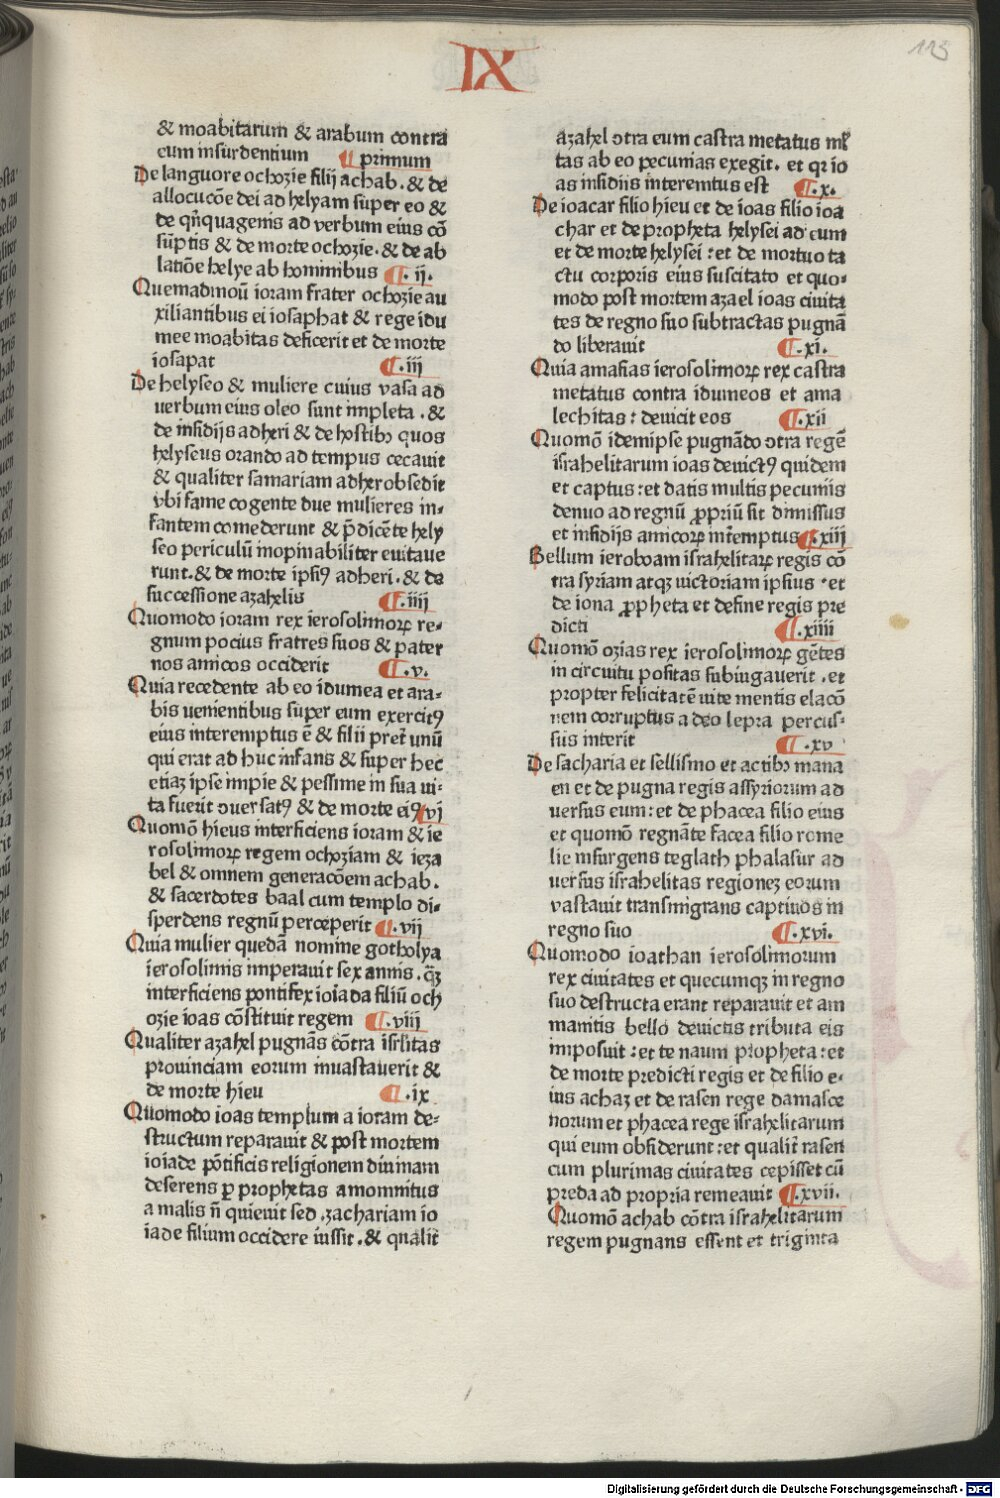 IX
115
& moabitarum & arabum contra
eum insurdentium ¶ primum
De languore ochozie filij achab . & de
allocucōe dei ad helyam super eo &
de qn̄quagenis ad verbum eius cō
sūptis & de morte ochozie . & de ab
latiōe helye ab hominibus ¶ . ij .
Quemadmoū ioram frater ochozie au
xiliantibus ei iosaphat & rege idu
mee moabitas deficerit et de morte
iosapat ¶ . iij
De helyseo & muliere cuius vasa ad
uerbum eius oleo sunt impleta . &
de insidijs adheri & de hostibꝫ quos
helyseus orando ad tempus cecauit
& qualiter samariam adher obsedit
vbi fame cogente due mulieres in⸗
fantem comederunt & p̄dicēte hely
seo periculū inopinabiliter euitaue
runt . & de morte ipsiꝰ adheri . & de
successione azahelis ¶ . iiij
Quomodo ioram rex ierosolimoꝝ re⸗
gnum pocius fratres suos & pater
nos amicos occiderit ¶ . v .
Quia recedente ab eo idumea et ara⸗
bis uenientibus super eum exercitꝰ
eius interemptus ē & filii pret̄ unū
qui erat ad huc infans & super hec
etiaꝫ ipse impie & pessime in sua ui⸗
ta fuerit ↄuersatꝰ & de morte eiꝰ vi
Quomō hieus interficiens ioram & ie
rosolimoꝝ regem ochoziam & ieza
bel & omnem generacōem achab .
& sacerdotes baal cum templo di⸗
sperdens regnū perceperit ¶ . vij
Quia mulier quedā nomine gotholya
ierosolimis imperauit sex annis . q̄ꝫ
interficiens pontifex ioiada filiū och
ozie ioas cōstituit regem ¶ . viij
Qualiter azahel pugnās cōtra isr̄litas
prouinciam eorum inuastauerit &
de morte hieu ¶ . ix
Quomodo ioas templum a ioram de⸗
structum reparauit & post mortem
ioiade pōtificis religionem diuinam
deserens ꝑ prophetas amomnitus
a malis n̄ quieuit sed . zachariam io
iade filium occidere iussit . & qualit̄
azahel ↄtra eum castra metatus ml̄
tas ab eo pecunias exegit . et qꝛ io
as insidiis interemtus est ¶ . x .
De ioacar filio hieu et de ioas filio ioa
char et de propheta helysei ad eum
et de morte helysei : et de mortuo ta
ctu corporis eius suscitato et quo⸗
modo post mortem azael ioas ciuita
tes de regno suo subtractas pugnā
do liberauit ¶ . xi .
Quia amasias ierosolimoꝝ rex castra
metatus contra idumeos et ama
lechitas : deuicit eos ¶ . xii
Quomō idemipse pugnādo ↄtra regē
israhelitarum ioas deuictꝰ quidem
et captus : et datis multis pecuniis
denuo ad regnū ꝓpriū sit dimissus
et insidijs amicoꝝ int̄emptus ¶ . xiij
Bellum ieroboam israhelitaꝝ regis cō
tra syriam atqꝫ uictoriam ipsius : et
de iona ꝓpheta et define regis pre
dicti ¶ . xiiii
Quomō ozias rex ierosolimoꝝ gētes
in circuitu positas subiugauerit . et
propter felicitatē uite mentis elacō
nem corruptus a deo lepra percus⸗
sus interit ¶ . xv
De sacharia et sellismo et actibꝫ mana
en et de pugna regis assyriorum ad
uersus eum : et de phacea filio eius
et quomō regnāte facea filio rome
lie insurgens teglath phalasur ad
uersus israhelitas regioneꝫ eorum
vastauit transmigrans captiuos in
regno suo ¶ . xvi .
Quomodo ioathan ierosolimorum
rex ciuitates et quecumqꝫ in regno
suo destructa erant reparauit et am
manitis bello deuictis tributa eis
imposuit : et te naum propheta : et
de morte predicti regis et de filio e⸗
ius achaz et de rasen rege damasce
norum et phacea rege israhelitarum
qui eum obsiderunt : et qualit̄ rasen
cum plurimas ciuitates cepisset cū
preda ad propria remeauit ¶ . xvii .
Quomō achab cōtra israhelitarum
regem pugnans essent et triginta
Digitalisierung gefördert durch die Deutsche Forschungsgemeinschaft - DFG